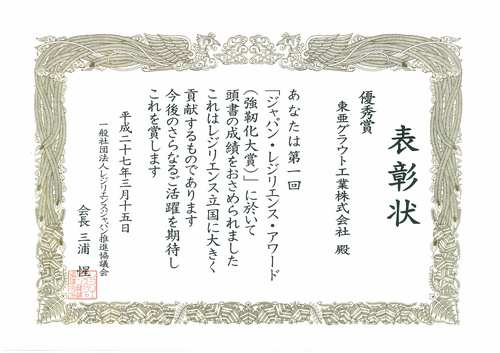 表彰状
優秀賞
東亜グラウト工業株式会社 殿
あなたは第一回
「ジャパン・レジリエンス・アワード
(強靭化大賞)」に於いて
頭書の成績をおさめられました
これはレジリエンス立国に大きく
貢献するものであります
今後のさらなるご活躍を期待し
これを賞します
平成二十七年三月十五日
一般社団法人レジリエンスジャパン推進協議会
会長 三浦 惺